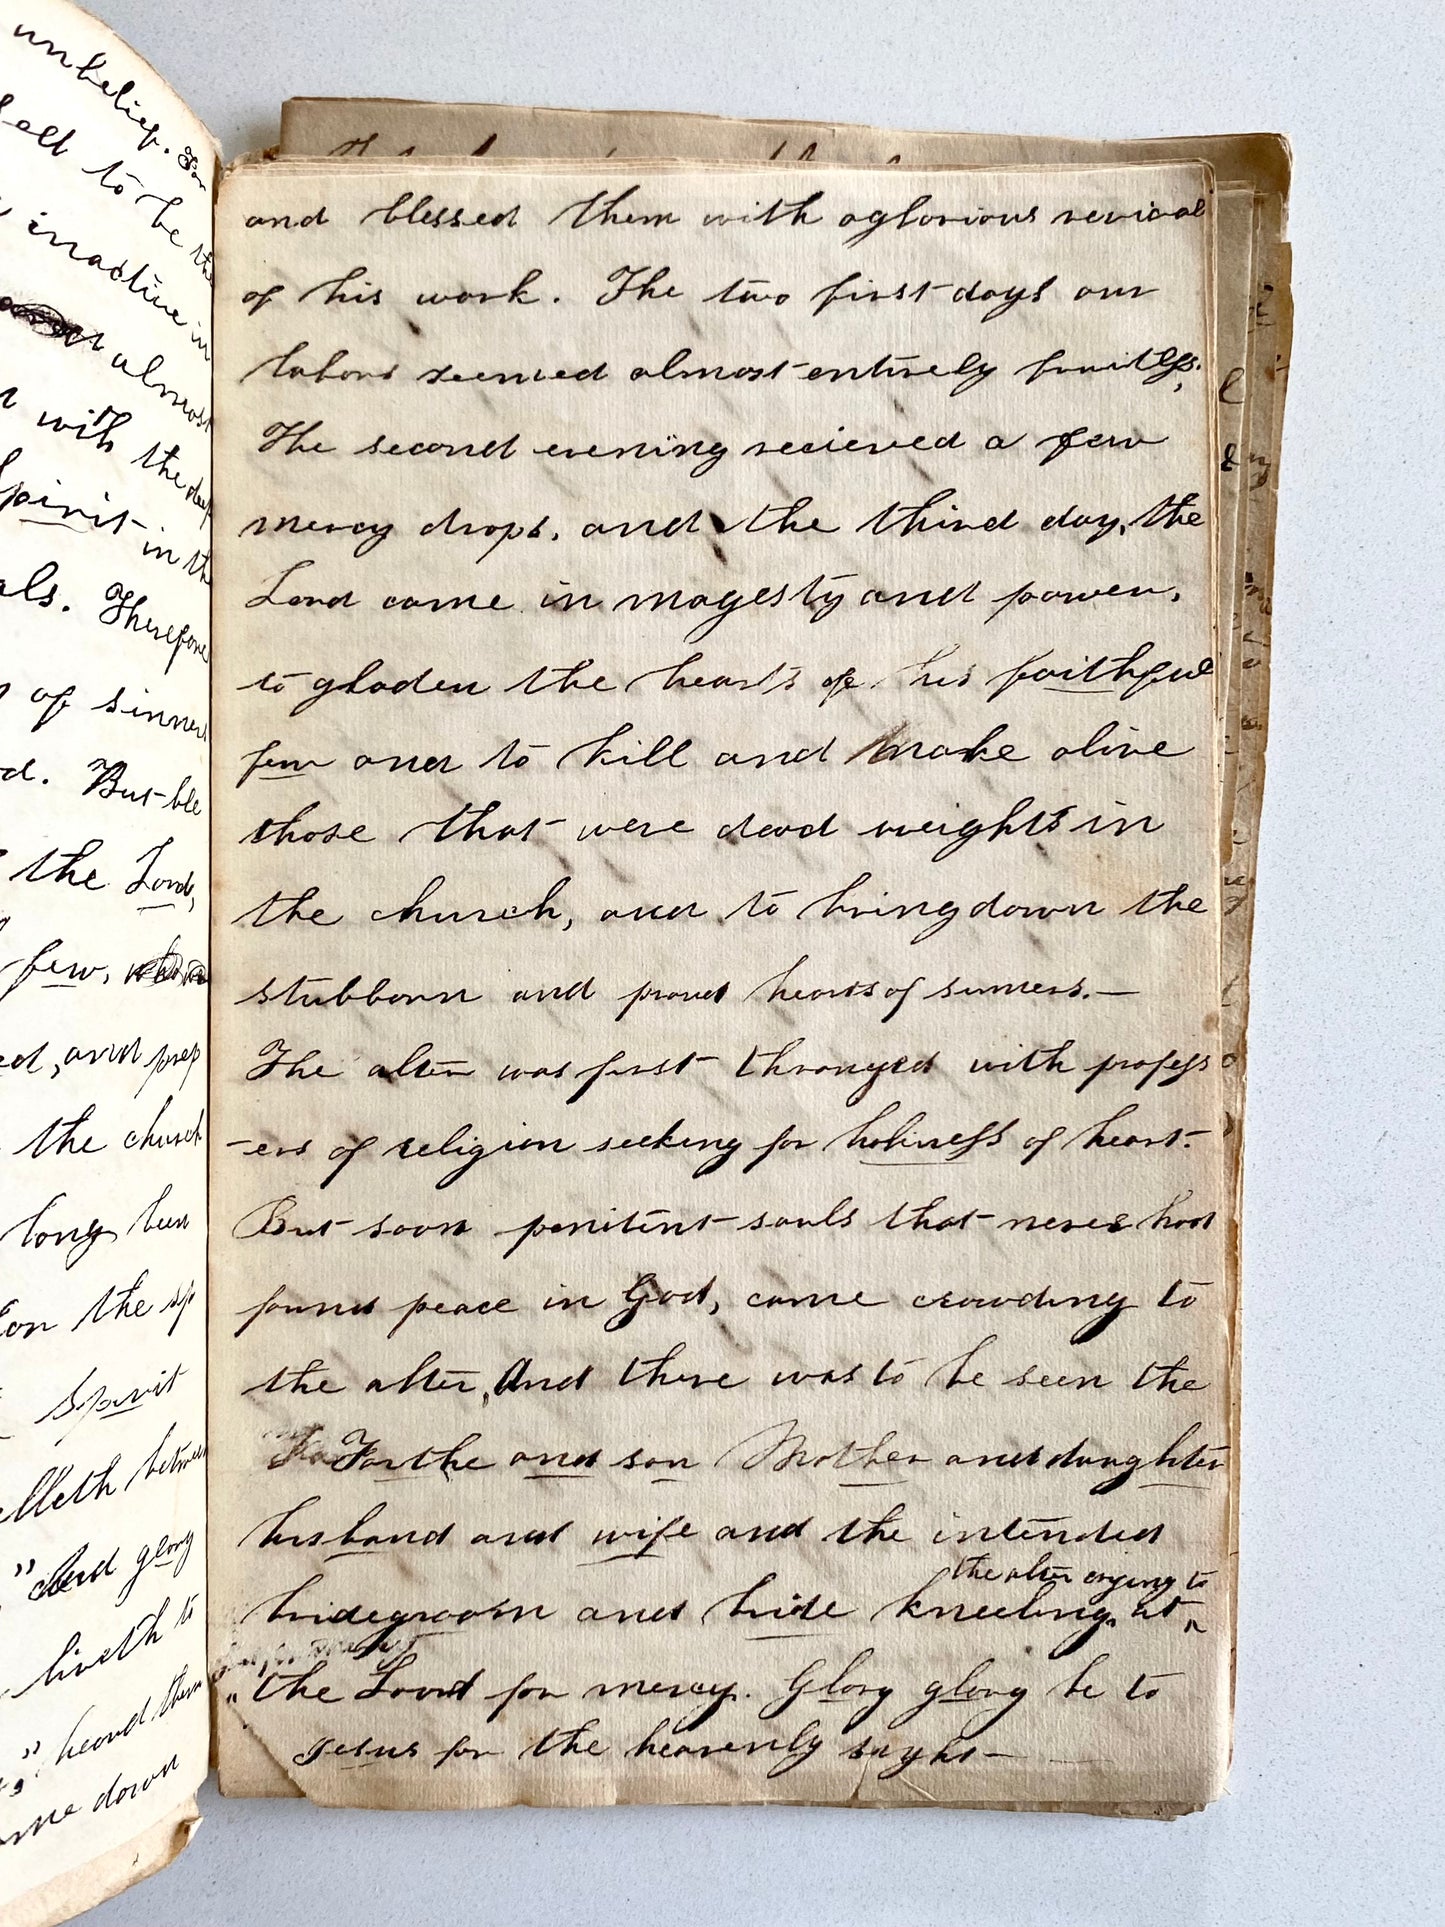 unbelief. For
to be the
inactive in
almost
with the deep
Spirit in the
als. Therefore
of sinners
d. But ble
the Lord,
few,
ed, and prep
the church
long been
on the sp
Spirit
elleth between
" and glory
liveth to
" heard them
me down
and blessed them with aglorious revival
of his work. The two first days our
labors seemed almost entirely fruitless.
The second evening recieved a few
mercy drops, and the third day, the
Lord came in magesty and power,
to gladen the hearts of his faithful
few and to kill and make alive
those that were dead weights in
the church, and to bring down the
stubborn and proud hearts of sinners.—
The alter was first thronged with profess
-ers of religion seeking for holiness of heart.
But soon penitent souls that never had
found peace in God, came crowding to
the alter, And there was to be seen the
Farthe and son Mother and daughter
husband and wife and the intended
the alter crying to
bridegroom and bride kneeling at
"the Lord for mercy. Glory glory be to
Jesus for the heavenly sight—